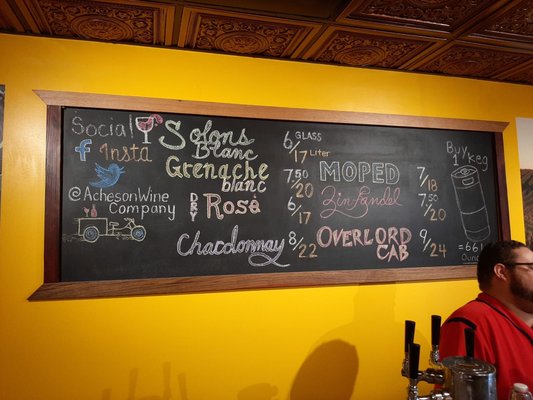 Social
f Insta
@AchesonWine
Company
Solons
Blanc
6/ GLASS
17 Liter
Grenache
blanc
7.50/
20
DRY Rosé
6/
17
Chardonnay
8/
22
MOPED
7/
18
Zinfandel
7.50/
20
OVERLORD
CAB
9/
24
Buy
1 keg
=661
Ounc